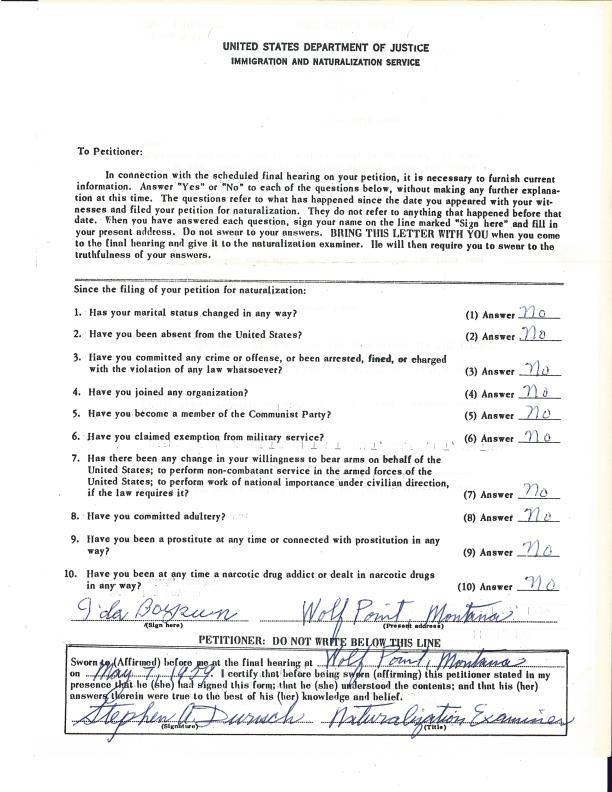 UNITED STATES DEPARTMENT OF JUSTICE
IMMIGRATION AND NATURALIZATION SERVICE
To Petitioner:
In connection with the scheduled final hearing on your petition, it is necessary to furnish current
information. Answer "Yes" or "No" to each of the questions below, without making any further explana-
tion at this time. The questions refer to what has happened since the date you appeared with your wit-
nesses and filed your petition for naturalization. They do not refer to anything that happened before that
date. When you have answered each question, sign your name on the line marked "Sign here" and fill in
your present address. Do not swear to your answers. BRING THIS LETTER WITH YOU when you come
to the final hearing and give it to the naturalization examiner. He will then require you to swear to the
truthfulness of your answers.
Since the filing of your petition for naturalization:
1. Has your marital status changed in any way? (1) Answer No
2. Have you been absent from the United States? (2) Answer No
3. Have you committed any crime or offense, or been arrested, fined, or charged
with the violation of any law whatsoever? (3) Answer No
4. Have you joined any organization? (4) Answer No
5. Have you become a member of the Communist Party? (5) Answer No
6. Have you claimed exemption from military service? (6) Answer No
7. Has there been any change in your willingness to bear arms on behalf of the
United States; to perform non-combatant service in the armed forces of the
United States; to perform work of national importance under civilian direction,
if the law requires it? (7) Answer No
8. Have you committed adultery? (8) Answer No
9. Have you been a prostitute at any time or connected with prostitution in any
way? (9) Answer No
10. Have you been at any time a narcotic drug addict or dealt in narcotic drugs
in any way? (10) Answer No
Ida Wolf Point, Montana
(Sign here) (Present address)
PETITIONER: DO NOT WRITE BELOW THIS LINE
Sworn to (Affirmed) before me at the final hearing at Wolf Point, Montana
on May 7, 1959. I certify that before being sworn (affirming) this petitioner stated in my
presence that he (she) had signed this form; that he (she) understood the contents; and that his (her)
answers therein were true to the best of his (her) knowledge and belief.
Stephen A. Naturalization Examiner
(Signature) (Title)